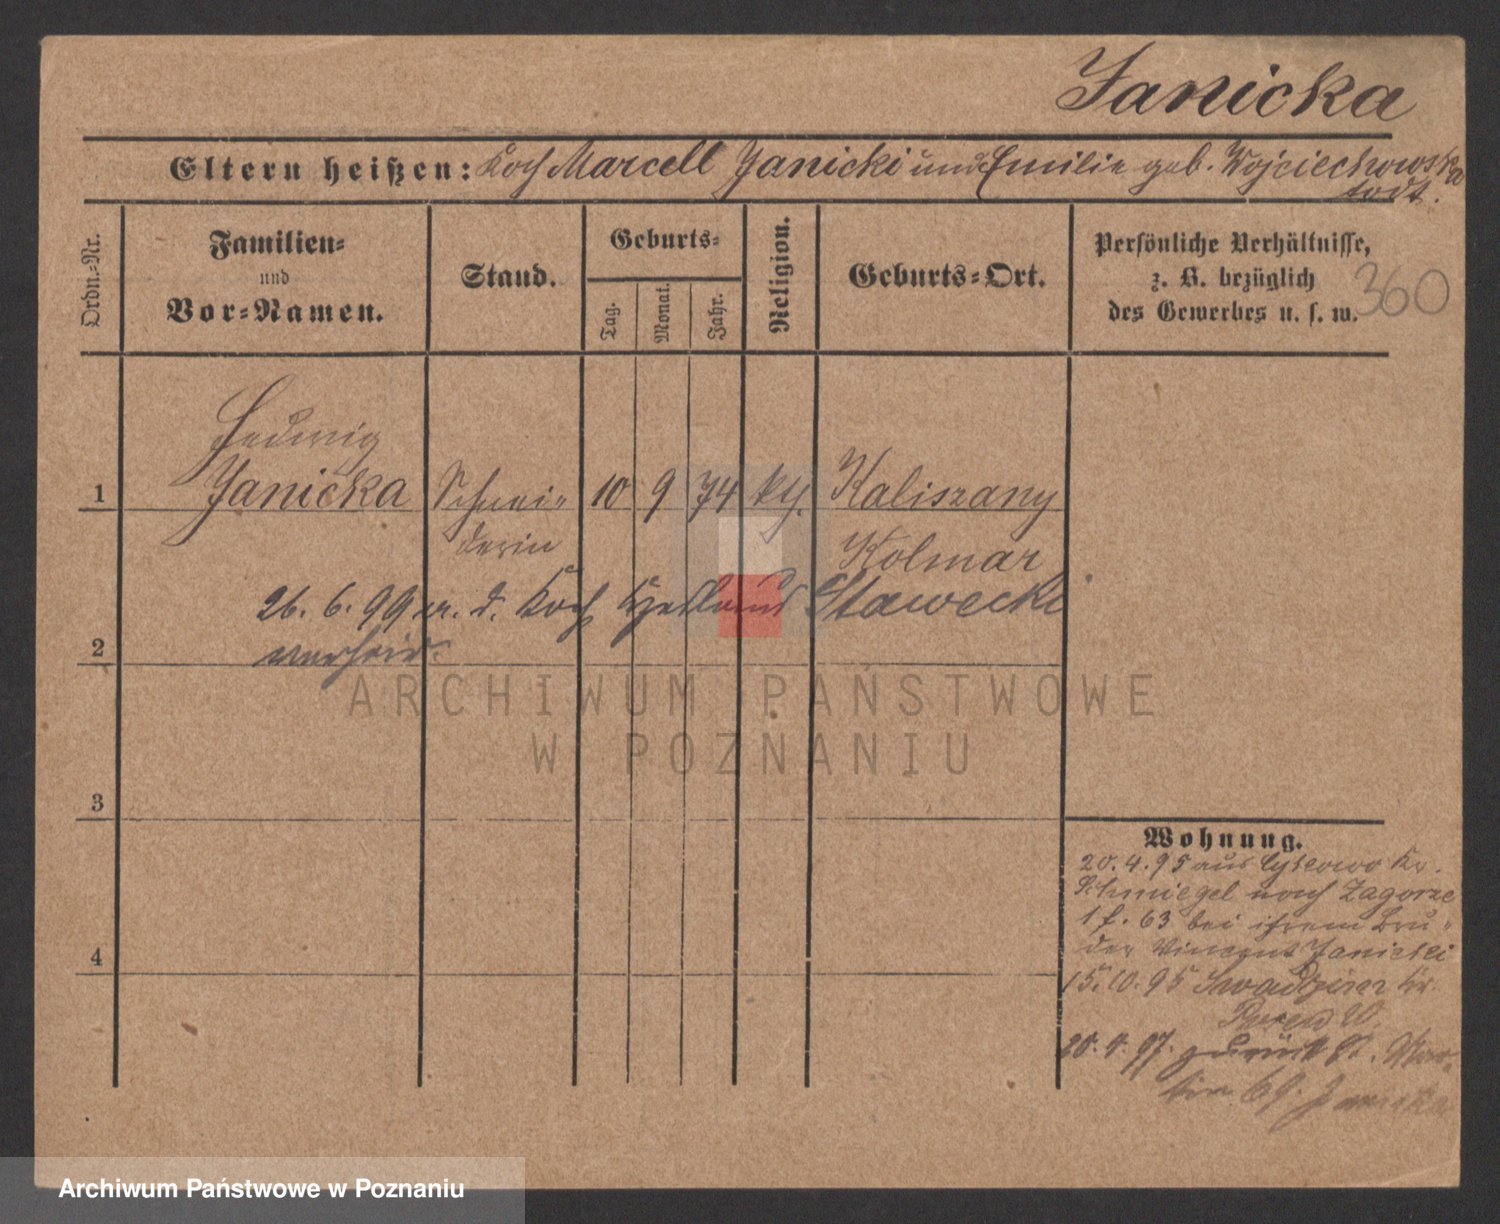 Janicka
Eltern heißen: Koch Marcell Janicki und Emilie geb. Wojciechowska
todt.
Ordn.-Nr.
Familien-
und
Vor-Namen.
Stand.
Geburts-
Tag.
Monat.
Jahr.
Religion.
Geburts-Ort.
Persönliche Verhältnisse,
z. B. bezüglich
des Gewerbes u. s. w.
360
Hedwig
1 Janicka Schnei- 10 9 74 kth. Kaliszany
derin Kolmar
26. 6. 99 m. d. Koch Stawecki
2 verheir.
3
4
Wohnung.
20. 4. 95 aus Kr.
Schmiegel nach Zagorze
63 bei ihrem Bru-
der Vincent Janicki
15. 10. 95 Kr.
Posen W.
97. zurück St. Mar-
tin 69. Janicka
ARCHIWUM PAŃSTWOWE
W POZNANIU
Archiwum Państwowe w Poznaniu